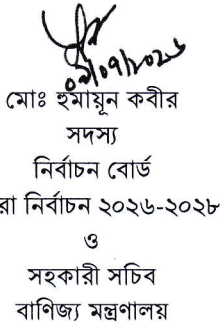 ০৯/০৭/২০২৬
মোঃ হুমায়ূন কবীর
সদস্য
নির্বাচন বোর্ড
রা নির্বাচন ২০২৬-২০২৮
ও
সহকারী সচিব
বাণিজ্য মন্ত্রণালয়